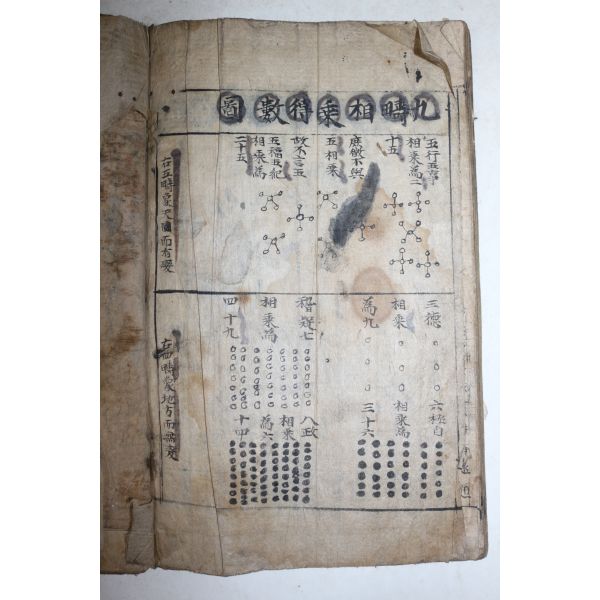 九疇相乘得數圖
五行五事
相乘爲二
十五
庶徵不與
五相乘
故不言五
五福五紀
相乘爲
二十五
右五疇象天圓而有變
三德
相乘
爲九
六極自
相乘爲
三十六
稽疑七
相乘爲
四十九
八政
相乘
爲六
十四